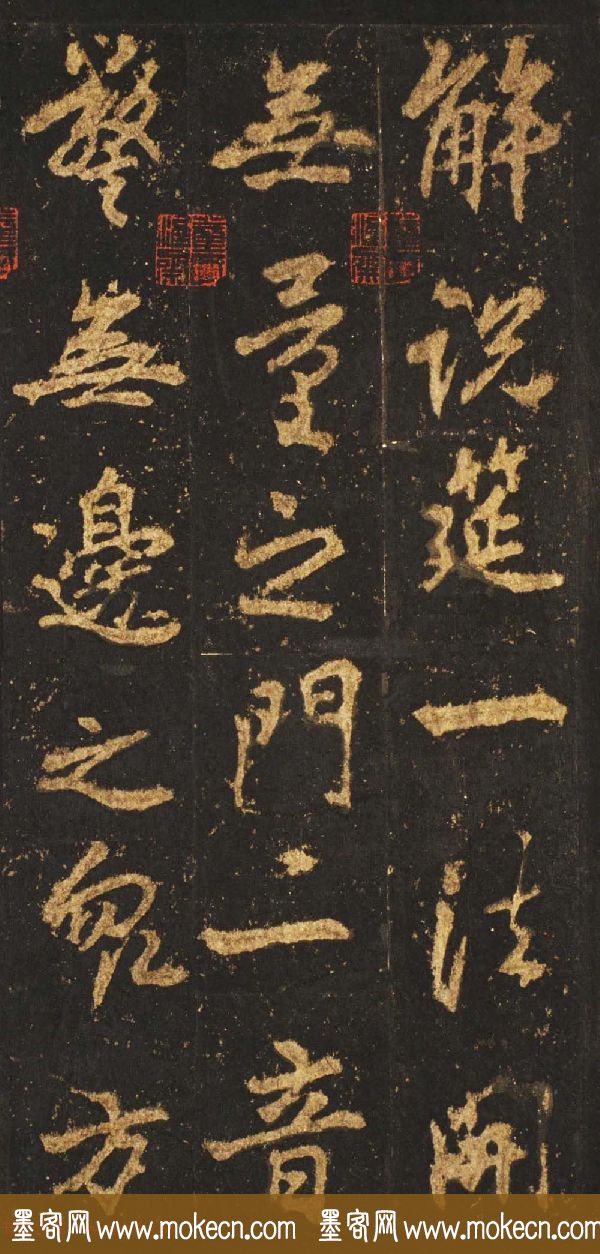 解說筵一法開
無量之門二音
警無邊之衆方
墨客网 www.mokecn.com 墨客网 www.mokecn.com